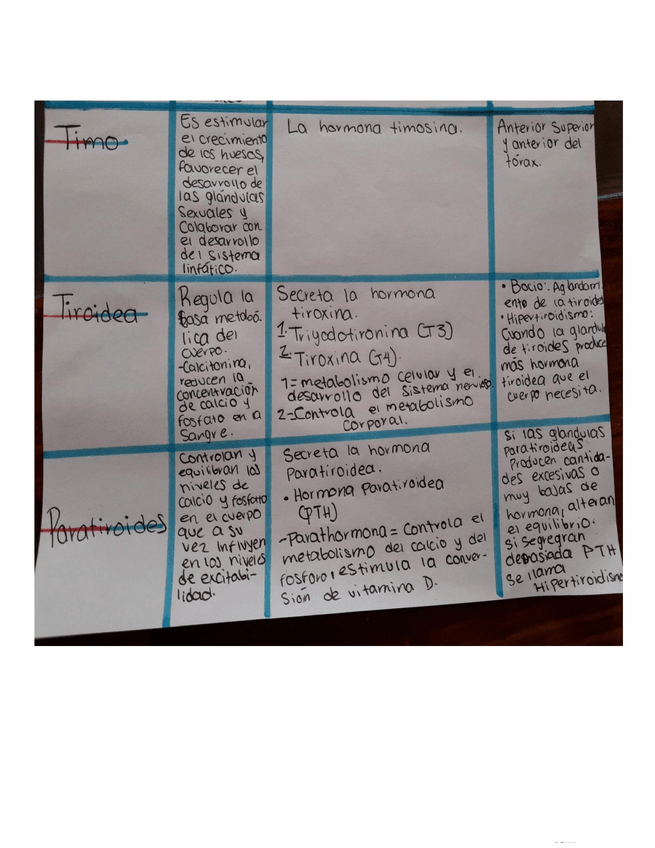 Timo
Es estimular
el crecimiento
de los huesos,
favorecer el
desarrollo de
las glándulas
sexuales y
Colaborar con
el desarrollo
del sistema
linfático.
La hormona timosina.
Anterior Superior
y anterior del
tórax.
Tiroidea
Regula la
tasa metabó
lica del
cuerpo.
-Calcitonina,
reducen la
concentración
de calcio y
fosfato en a
Sangre.
Secreta la hormona
tiroxina.
1. Triyodotironina (T3)
2. Tiroxina (T4).
1=metabolismo celular y el
desarrollo del sistema nervioso.
2-Controla el metabolismo
corporal.
• Bocio: Agrandam
ento de la tiroides
• Hipertiroidismo:
Cuando la glandula
de tiroides produce
más hormona
tiroidea que el
cuerpo necesita.
Paratiroides
Controlan y
equilibran los
niveles de
calcio y fosfato
en el cuerpo
que a su
vez influyen
en los niveles
de excitabi-
lidad.
Secreta la hormona
Paratiroidea.
• Hormona Paratiroidea
(PTH)
-Parathormona= Controla el
metabolismo del calcio y del
fosforo, estimula la conver-
sión de vitamina D.
Si las glándulas
Paratiroideas
Producen cantida-
des excesivas o
muy bajas de
hormona, alteran
el equilibrio.
si segregran
demasiada PTH
se llama
Hipertiroidism